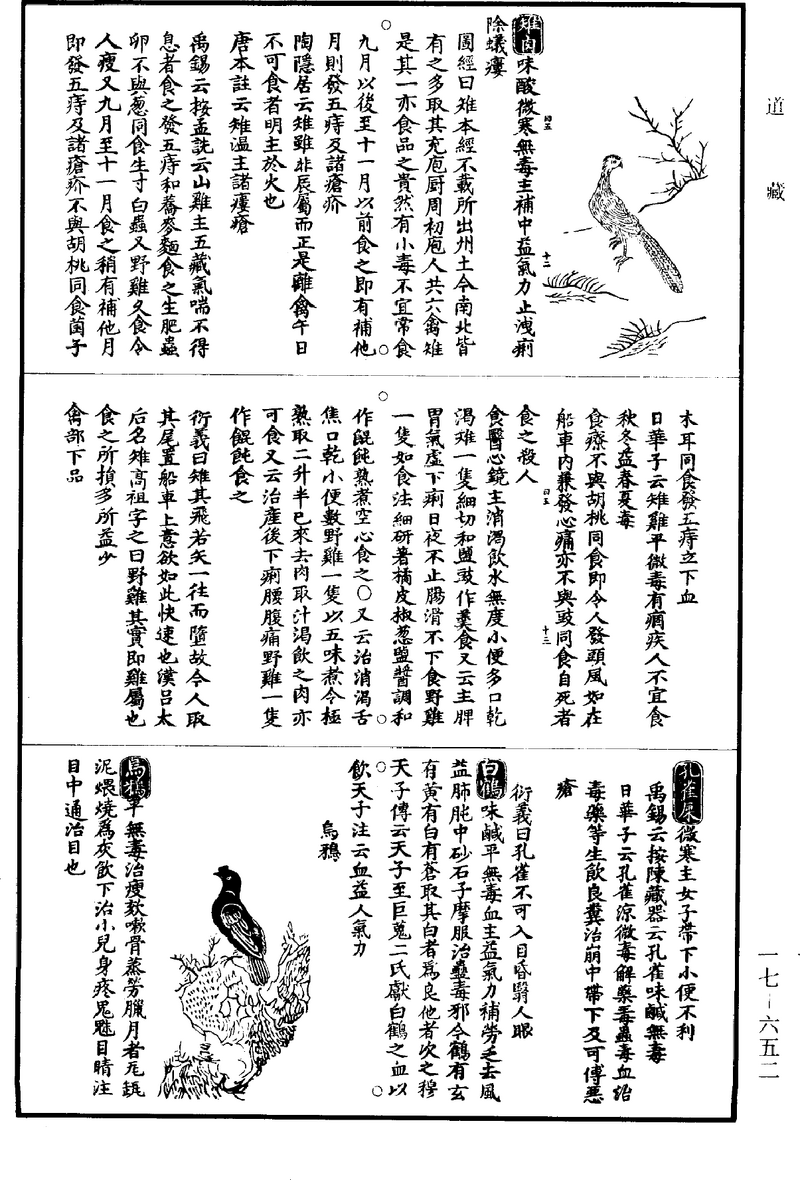 道藏
雉肉味酸微寒無毒主補中益氣力止洩痢
除蟻瘻
圖經曰雉本經不載所出州土今南北皆
有之多取其充庖厨周礼庖人共六禽雉
是其一亦食品之貴然有小毒不宜常食
九月以後至十一月以前食之即有補他
月則發五痔及諸瘡疥
陶隱居云雉雖非辰屬而正是離禽午日
不可食者明主於火也
唐本註云雉温主諸瘻瘡
禹錫云按孟詵云山雞主五藏氣喘不得
息者食之發五痔和蕎麥麵食之生肥蟲
卵不與葱同食生寸白蟲又野雞久食令
人瘦又九月至十一月食之稍有補他月
即發五痔及諸瘡疥不與胡桃同食菌子
木耳同食發五痔立下血
日華子云雉雞平微毒有痼疾人不宜食
秋冬益春夏毒
食療不與胡桃同食即令人發頭風如在
船車内兼發心痛亦不與豉同食自死者
食之殺人
食醫心鏡主消渴飲水無度小便多口乾
渴雉一隻細切和鹽豉作羹食又云主脾
胃氣虛下痢日夜不止腸滑不下食野雞
一隻如食法細研著橘皮椒葱鹽醬調和
作餛飩熟煮空心食之○又云治消渴舌
焦口乾小便數野雞一隻以五味煮令極
熟取二升半已來去肉取汁渴飲之肉亦
可食又云治產後下痢腰腹痛野雞一隻
作餛飩食之
衍義曰雉其飛若矢一往而墮故令人取
其尾置船車上意欲如此快速也漢吕太
后名雉高祖字之曰野雞其實即雞屬也
食之所損多所益少
禽部下品
孔雀屎微寒主女子帶下小便不利
禹錫云按陳藏器云孔雀味鹹無毒
日華子云孔雀涼微毒解藥毒蟲毒血治
毒藥等生飲良糞治崩中帶下及可傅惡
瘡
衍義曰孔雀不可入目昏翳人眼
白鶴味鹹平無毒血主益氣力補勞乏去風
益肺肫中砂石子摩服治蠱毒邪今鶴有玄
有黄有白有蒼取其白者爲良他者次之穆
天子傳云天子至巨蒐二氏獻白鶴之血以
飲天子注云血益人氣力
烏鴉
烏鴉平無毒治瘦欬嗽骨蒸勞臘月者瓦瓶
泥煨燒爲灰飲下治小兒身疼鬼魅目睛注
目中通治目也
一七－六五二
四五
十二
四五
十三